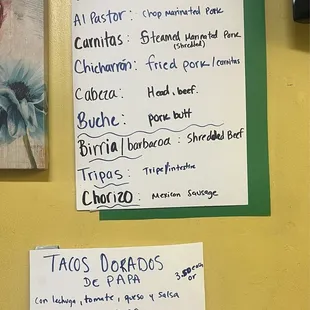 Al Pastor: Chop Marinated Pork
Carnitas: Steamed Marinated Pork
(Shredded)
Chicharrón: fried pork/carnitas
Cabeza: Head, beef.
Buche: pork butt
Birria/barbacoa: Shredded Beef
Tripas: Tripe/intestine
Chorizo: Mexican Sausage
TACOS DORADOS
DE PAPA
3.50 each
or
con lechuga, tomate, queso y salsa